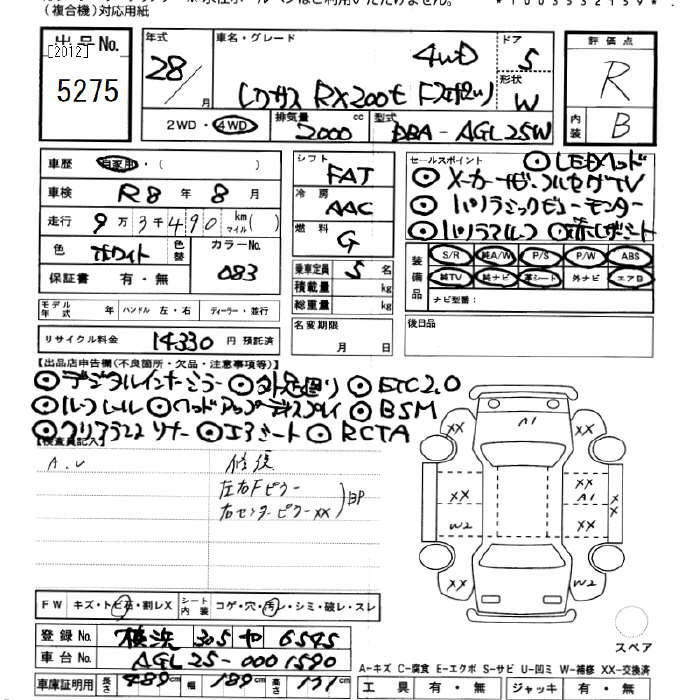 (複合機)対応用紙
*1003532159*
出品No.
[2012]
5275
年式
28/
月
車名・グレード
4WD
レクサス RX200t Fスポーツ
ドア
5
形状
W
2WD・4WD
排気量
2000
cc
型式
DBA-AGL25W
評価点
R
内装
B
車歴
自家用・( )
車検
R8年8月
走行
9万3千490
km
マイル
( )
色
ホワイト
色替
カラーNo.
083
保証書 有・無
シフト
FAT
冷房
AAC
燃料
G
乗車定員 5名
積載量 kg
総重量 kg
セールスポイント
⊙LEDヘッド
⊙メーカーナビ・フルセグTV
⊙パノラミックビューモニター
⊙パノラマルーフ ⊙赤レザーシート
装備品
S/R 純A/W P/S P/W ABS
純TV 純ナビ 革シート 外ナビ エアB
ナビ型番:
モデル年式 年 ハンドル 左・右 ディーラー・並行
リサイクル料金 14330 円 預託済
名変期限
月 日
後日品
【出品店申告欄(不良箇所・欠品・注意事項等)】
⊙デジタルインナーミラー ⊙ ⊙ETC2.0
⊙ルーフレール ⊙ヘッドアップディスプレイ ⊙BSM
⊙クリアランスソナー ⊙エアシート ⊙RCTA
【検査員記入】
A.U
修復
左右Fピラー
右センターピラーXX
BP
A1
XX
XX
XX
XX
A1
XX
W2
XX
XX
W2
FW キズ・トビ石・割レX
シート内装 コゲ・穴・汚レ・シミ・破レ・スレ
スペア
登録No. 横浜 305 や 6545
車台No. AGL25-0001590
車庫証明用 長さ 489cm 幅 189cm 高さ 171
A-キズ C-腐食 E-エクボ S-サビ U-凹ミ W-補修 XX-交換済
工具 有・無 ジャッキ 有・無